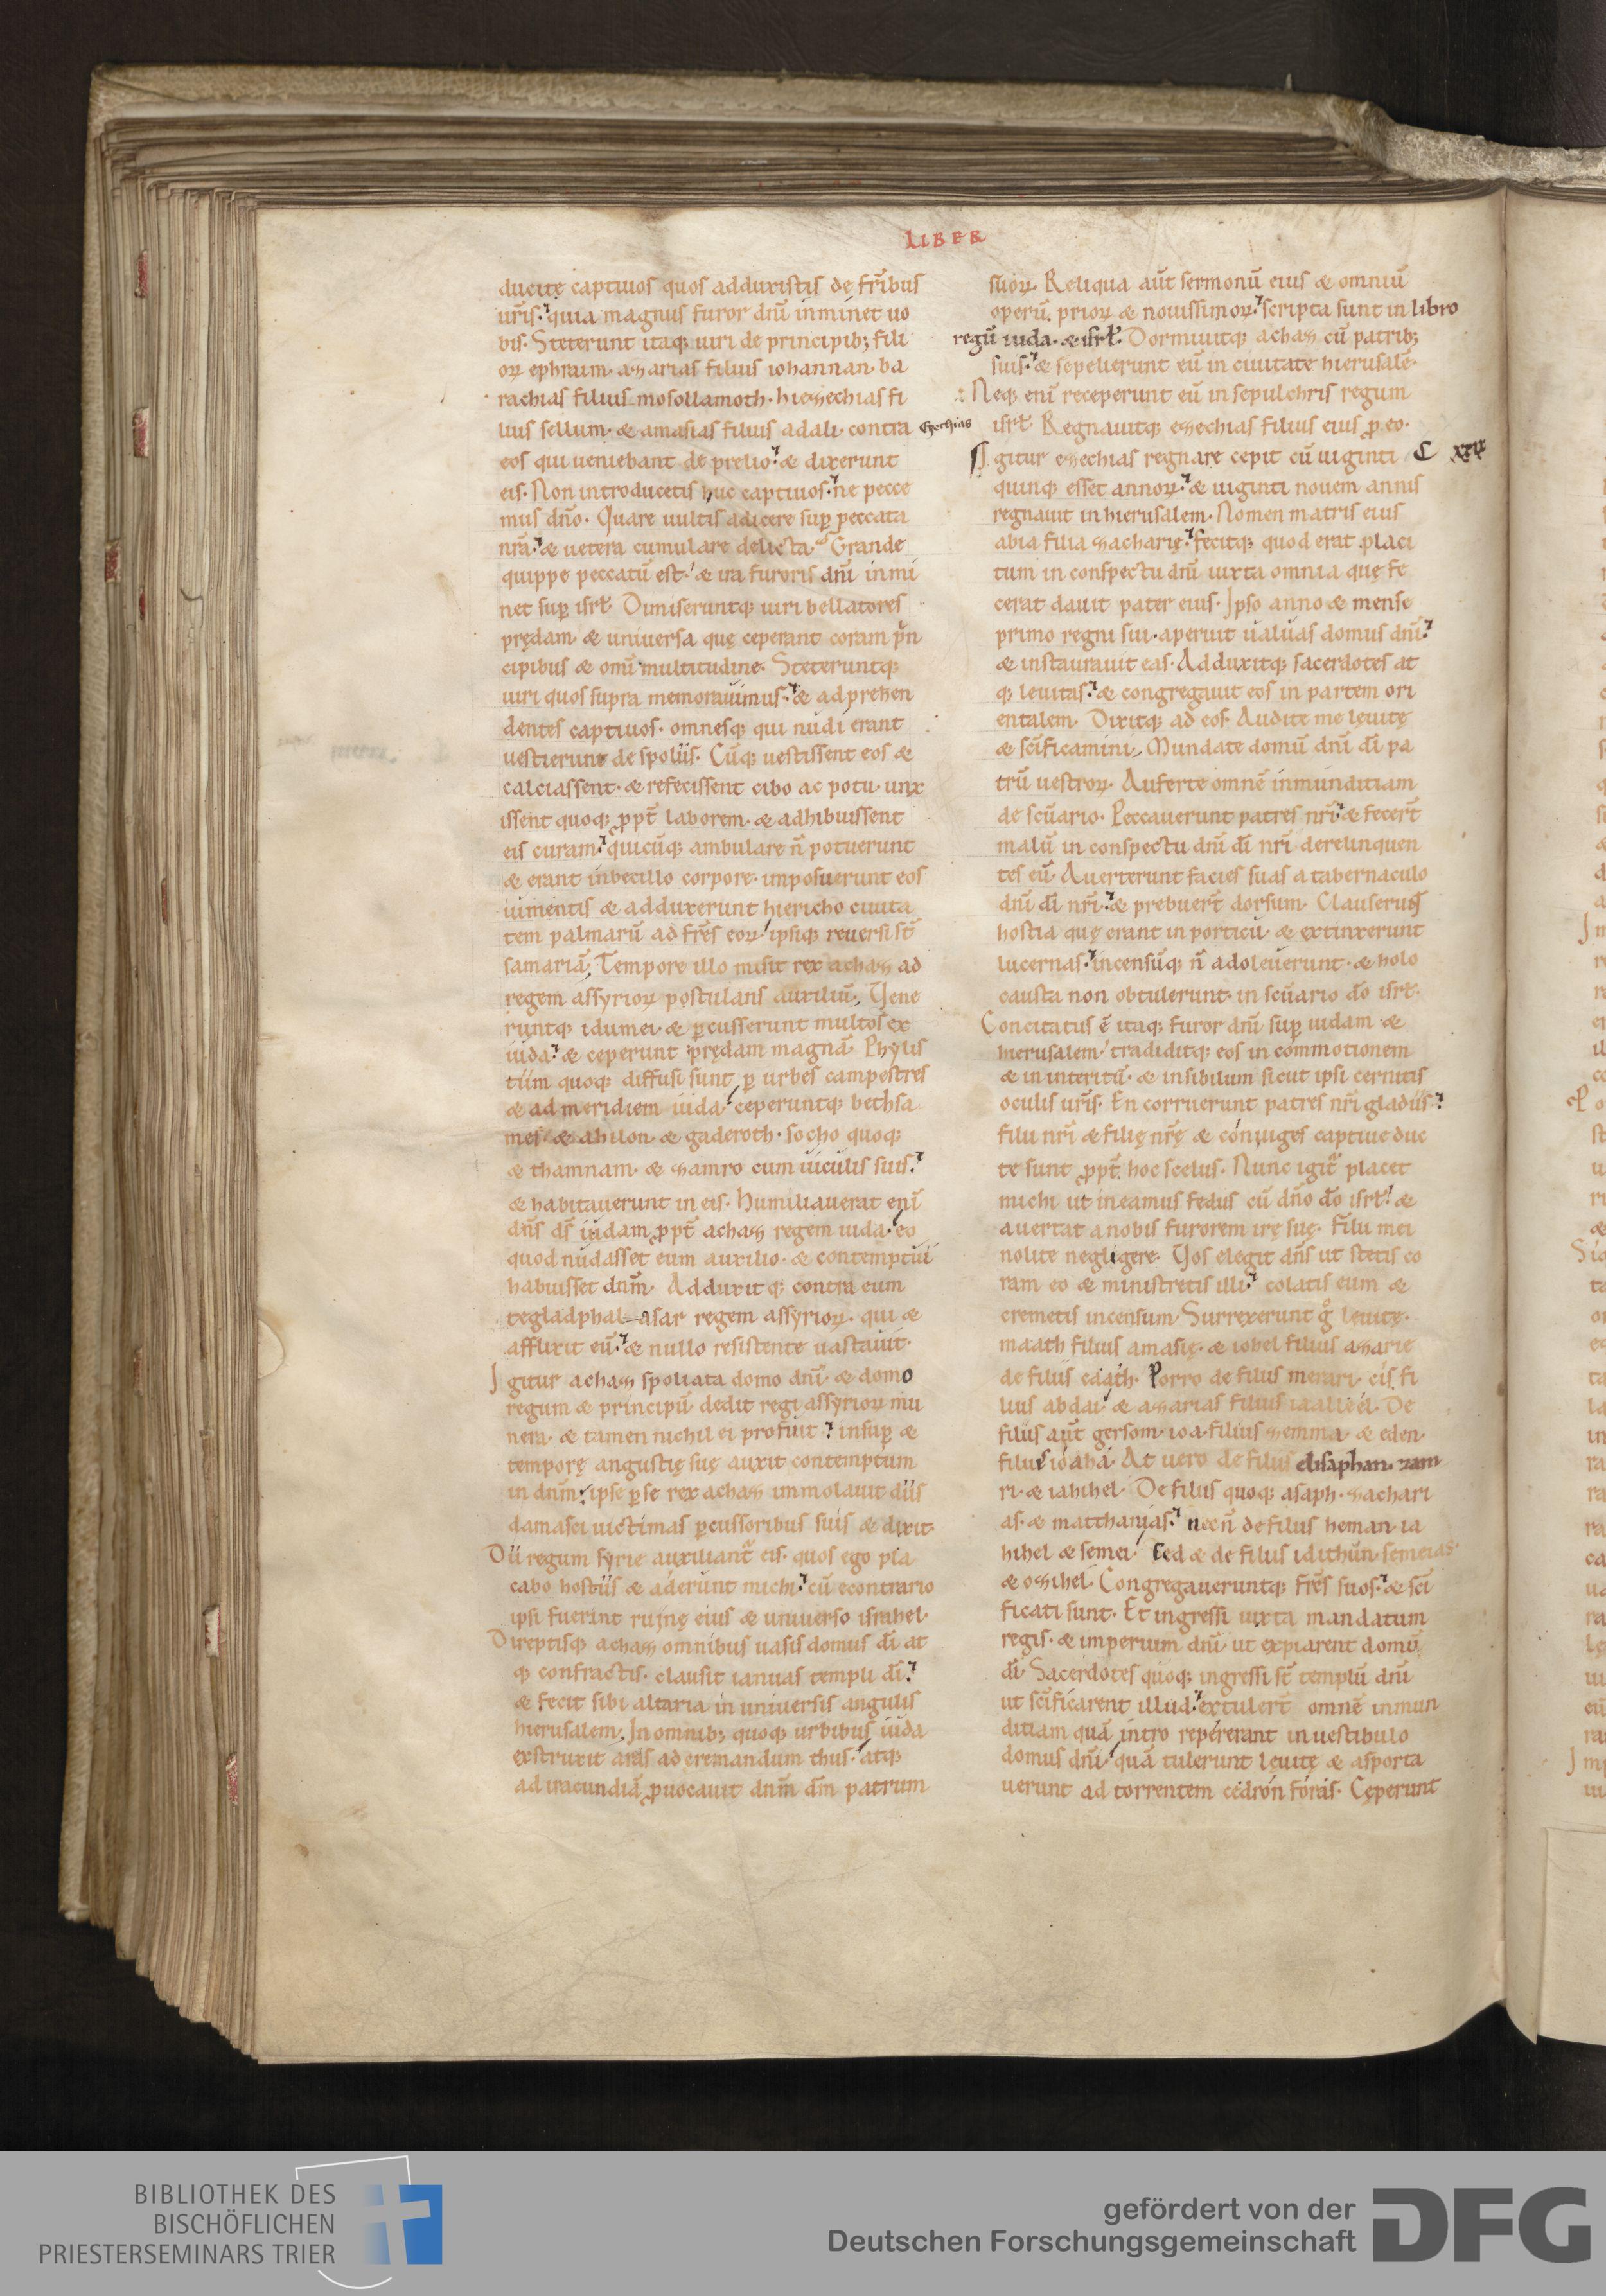 LIBER
ducite captiuos quos adduxistis de fr̄ibus
ur̄is. quia magnus furor dn̄i inminet uo
bis. Steterunt itaq; uiri de principib; fili
oꝝ ephraim. azarias filius iohannan. ba
rachias filius mosollamoth. hiezechias fi
lius sellum. & amasias filius adali. contra
eos qui ueniebant de prelio. & dixerunt
eis. Non introducetis huc captiuos. ne pecce
mus dn̄o. Quare uultis adicere suꝑ peccata
nr̄a. & uetera cumulare delicta. Grande
quippe peccatū est. & ira furoris dn̄i inmi
net suꝑ isrł. Dimiseruntq; uiri bellatores
prędam & uniuersa quę ceperant coram prin
cipibus & omī multitudine. Steteruntq;
uiri quos supra memorauimus. & adprehen
dentes captiuos. omnesq; qui nudi erant
uestierunt de spoliis. Cūq; uestissent eos &
calciassent. & refecissent cibo ac potu. unx
issent quoq; ꝓpt̄ laborem. & adhibuissent
eis curam. quicūq; ambulare n̄ potuerunt
& erant inbecillo corpore. imposuerunt eos
iumentis & adduxerunt hiericho ciuita
tem palmarū ad fr̄es eoꝝ. ipsiq; reuersi st̄
samariā. Tempore illo misit rex achaz ad
regem assyrioꝝ postulans auxiliū. Vene
runtq; idumei. & ꝑcusserunt multos ex
iuda. & ceperunt prędam magnā. Phylis
tiim quoq; diffusi sunt ꝑ urbes campestres
& ad meridiem iuda. ceperuntq; bethsa
mes. & ahilon. & gaderoth. socho quoq;
& thamnam. & zamro cum uiculis suis.
& habitauerunt in eis. Humiliauerat enī
dn̄s ds̄ iudam ꝓpt̄ achaz regem iuda. eo
quod nudasset eum auxilio. & contemptui
habuisset dn̄m. Adduxitq; contra eum
tegladphalasar regem assyrioꝝ. qui &
afflixit eū. & nullo resistente uastauit.
Igitur achaz spoliata domo dn̄i. & domo
regum & principū dedit regi assyrioꝝ mu
nera. & tamen nichil ei profuit. insuꝑ &
temporę angustię suę auxit contemptum
in dn̄m. ipse ꝑ se rex achaz immolauit diis
damasci uictimas ꝑcussoribus suis & dixit.
Dii regum syrie auxiliant̄ eis. quos ego pla
cabo hostiis & aderunt michi. cū econtrario
ipsi fuerint ruinę eius & uniuerso israhel.
Direptisq; achaz omnibus uasis domus dī at
q; confractis. clausit ianuas templi dī.
& fecit sibi altaria in uniuersis angulis
hierusalem. In omnib; quoq; urbibus iuda
exstruxit aras ad cremandum thus. atq;
ad iracundiā ꝓuocauit dn̄m dm̄ patrum
suoꝝ. Reliqua aūt sermonū eius & omniū
operū. prioꝝ & nouissimoꝝ. scripta sunt in libro
regū iuda. & isrł. Dormiuitq; achaz cū patrib;
suis. & sepelierunt eū in ciuitate hierusalē.
Neq; enī receperunt eū in sepulchris regum
isrł. Regnauitq; ezechias filius eius ꝓ eo.
Ezechias
Igitur ezechias regnare cepit cū uiginti
C XXIX
quinq; esset annoꝝ. & uiginti nouem annis
regnauit in hierusalem. Nomen matris eius
abia filia zacharię. fecitq; quod erat placi
tum in conspectu dn̄i iuxta omnia quę fe
cerat dauit pater eius. Ipso anno & mense
primo regni sui. aperuit ualuas domus dn̄i.
& instaurauit eas. Adduxitq; sacerdotes at
q; leuitas. & congregauit eos in partem ori
entalem. Dixitq; ad eos. Audite me leuitę
& sc̄ificamini. Mundate domū dn̄i dī pa
trū uestroꝝ. Auferte omnē inmunditiam
de sc̄uario. Peccauerunt patres nr̄i. & fecer̄t
malū in conspectu dn̄i dī nr̄i derelinquen
tes eū. Auerterunt facies suas a tabernaculo
dn̄i dī nr̄i. & prebuer̄t dorsum. Clauserunt
hostia quę erant in porticu. & extinxerunt
lucernas. incensūq; n̄ adoleuerunt. & holo
causta non obtulerunt. in sc̄uario dō isrł.
Concitatus ē itaq; furor dn̄i suꝑ iudam &
hierusalem. tradiditq; eos in commotionem
& in interitū. & in sibilum sicut ipsi cernitis
oculis ur̄is. En corruerunt patres nr̄i gladiis.
filii nr̄i & filię nr̄ę & coniuges captiue duc
te sunt ꝓpt̄ hoc scelus. Nunc igit̄ placet
michi ut ineamus fedus cū dn̄o dō isrł. &
auertat a nobis furorem irę suę. Filii mei
nolite negligere. Vos elegit dn̄s ut stetis co
ram eo & ministretis illi. colatis eum &
cremetis incensum. Surrexerunt g̊ leuitę.
maath filius amasię. & iohel filius azarie
de filiis caath. Porro de filiis merari. cis fi
lius abdai. & azarias filius iaalleel. De
filiis aūt gersom. ioa filius zemma. & eden
filius ioaha. At uero de filiis elisaphan. zam
ri. & iahihel. De filiis quoq; asaph. zachari
as. & matthanias. necn̄ de filiis heman ia
hihel & semei. Sed & de filiis idithun. semeias.
& ozihel. Congregaueruntq; fr̄es suos. & sc̄i
ficati sunt. Et ingressi iuxta mandatum
regis. & imperium dn̄i ut expiarent domū
dī. Sacerdotes quoq; ingressi st̄ templū dn̄i
ut sc̄ificarent illud. extuler̄t omnē inmun
ditiam quā intro repererant in uestibulo
domus dn̄i. quā tulerunt leuitę & asporta
uerunt ad torrentem cedron foras. Cęperunt
BIBLIOTHEK DES
BISCHÖFLICHEN
PRIESTERSEMINARS TRIER
gefördert von der
Deutschen Forschungsgemeinschaft
DFG